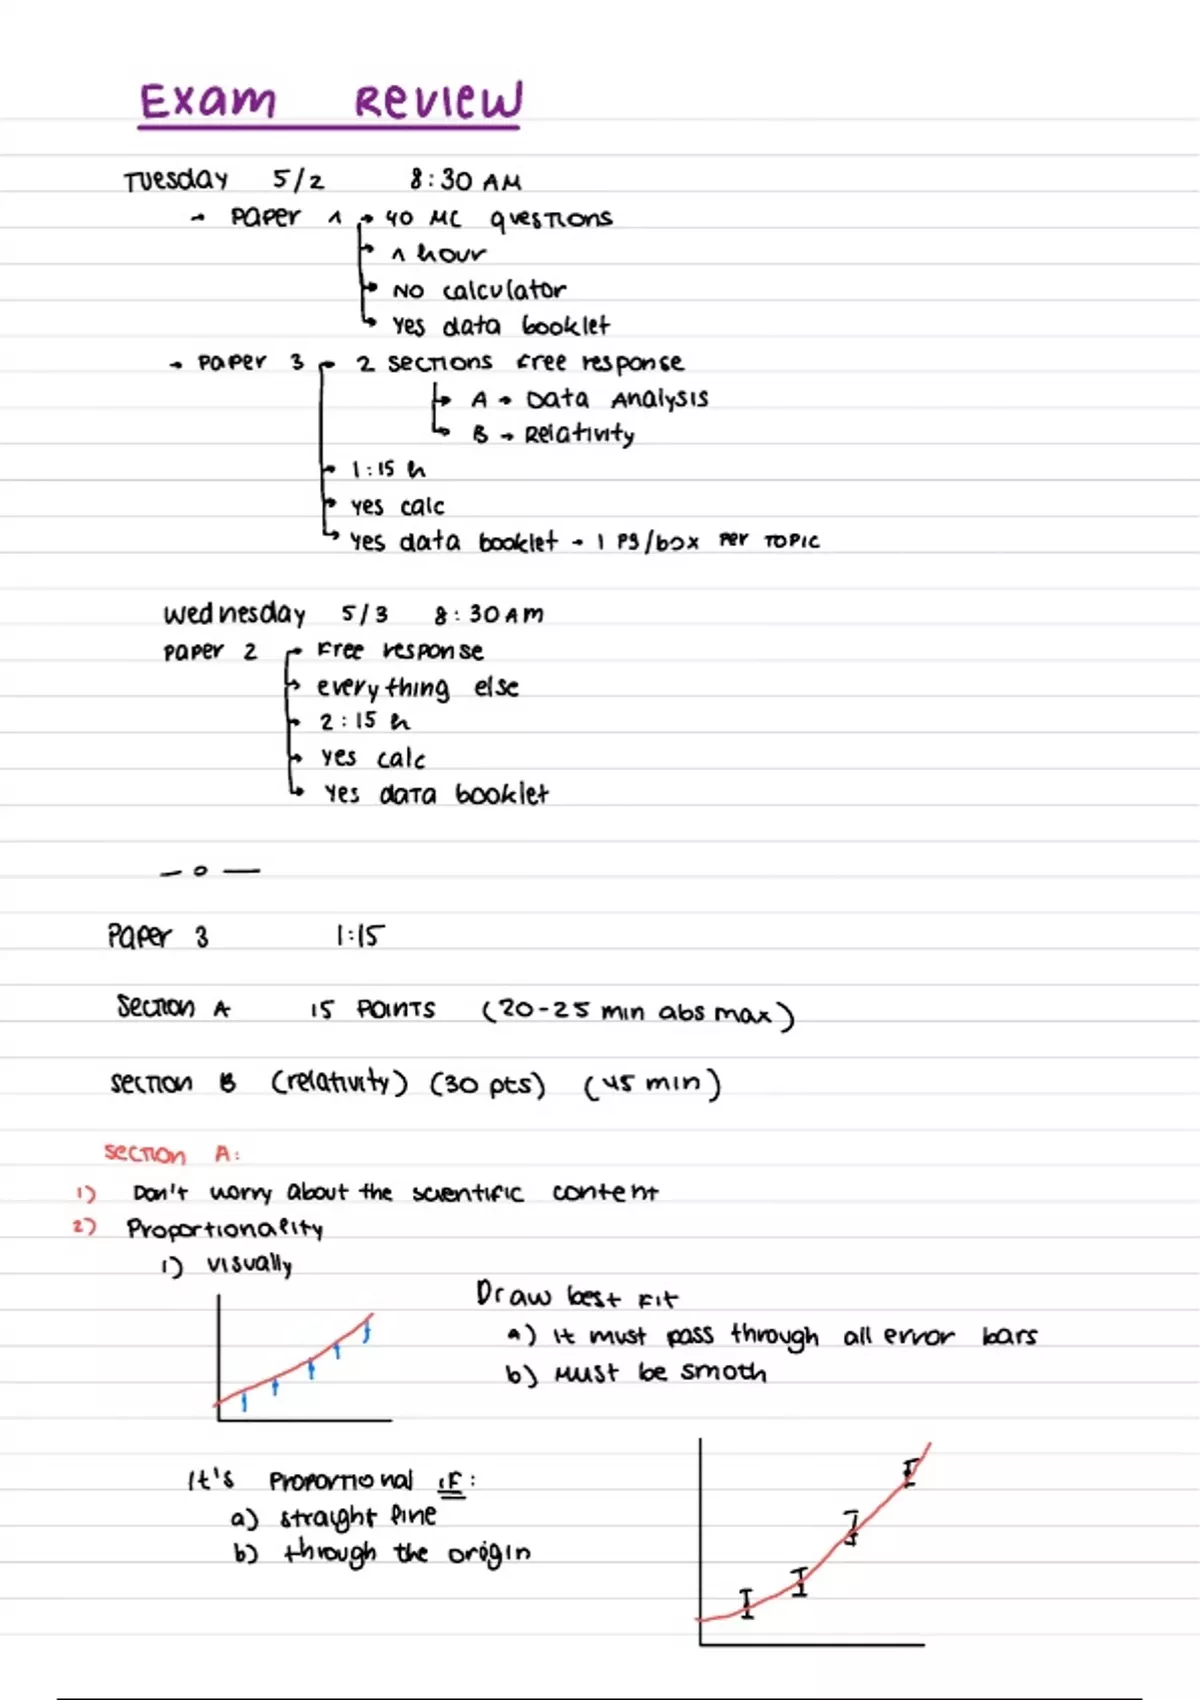 Exam Review
Tuesday 5/2 8:30 AM
→ Paper 1 → 40 MC questions
→ 1 hour
→ No calculator
→ Yes data booklet
→ Paper 3 → 2 sections free response
→ A → Data Analysis
→ B → Relativity
→ 1:15 h
→ Yes calc
→ Yes data booklet → 1 pg/box per topic
Wednesday 5/3 8:30 AM
Paper 2 → Free response
→ everything else
→ 2:15 h
→ Yes calc
→ Yes data booklet
Paper 3 1:15
Section A 15 points (20-25 min abs max)
Section B (relativity) (30 pts) (45 min)
Section A:
1) Don't worry about the scientific content
2) Proportionality
1) visually
Draw best fit
a) It must pass through all error bars
b) Must be smoth
It's proportional if:
a) straight line
b) through the origin